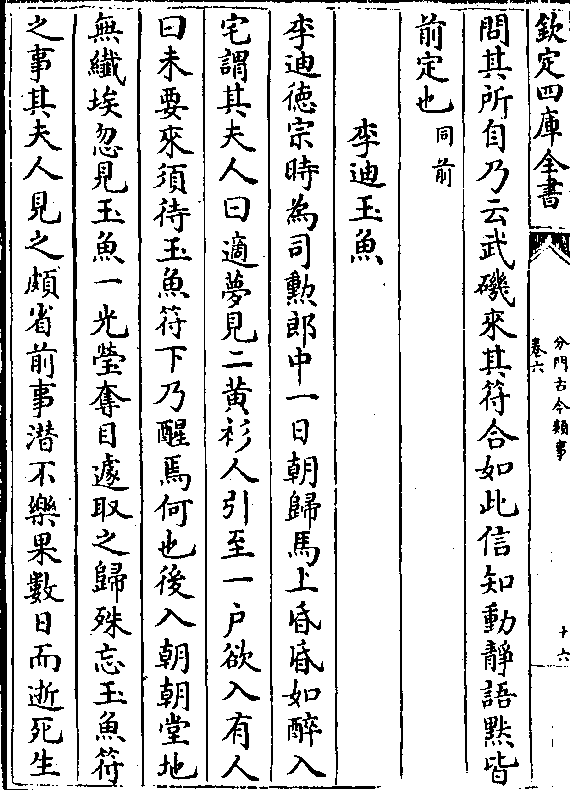 欽定四庫全書
分門古今類事
卷六
十六
問其所自乃云武磯來其符合如此信知動靜語黙皆
前定也同前
李迪玉魚
李迪徳宗時為司勲郎中一日朝歸馬上昏昏如醉入
宅謂其夫人曰適夢見二黄衫人引至一户欲入有人
曰未要來須待玉魚符下乃醒焉何也後入朝朝堂地
無纎埃忽見玉魚一光瑩奪目遽取之歸殊忘玉魚符
之事其夫人見之頗省前事潜不樂果數日而逝死生